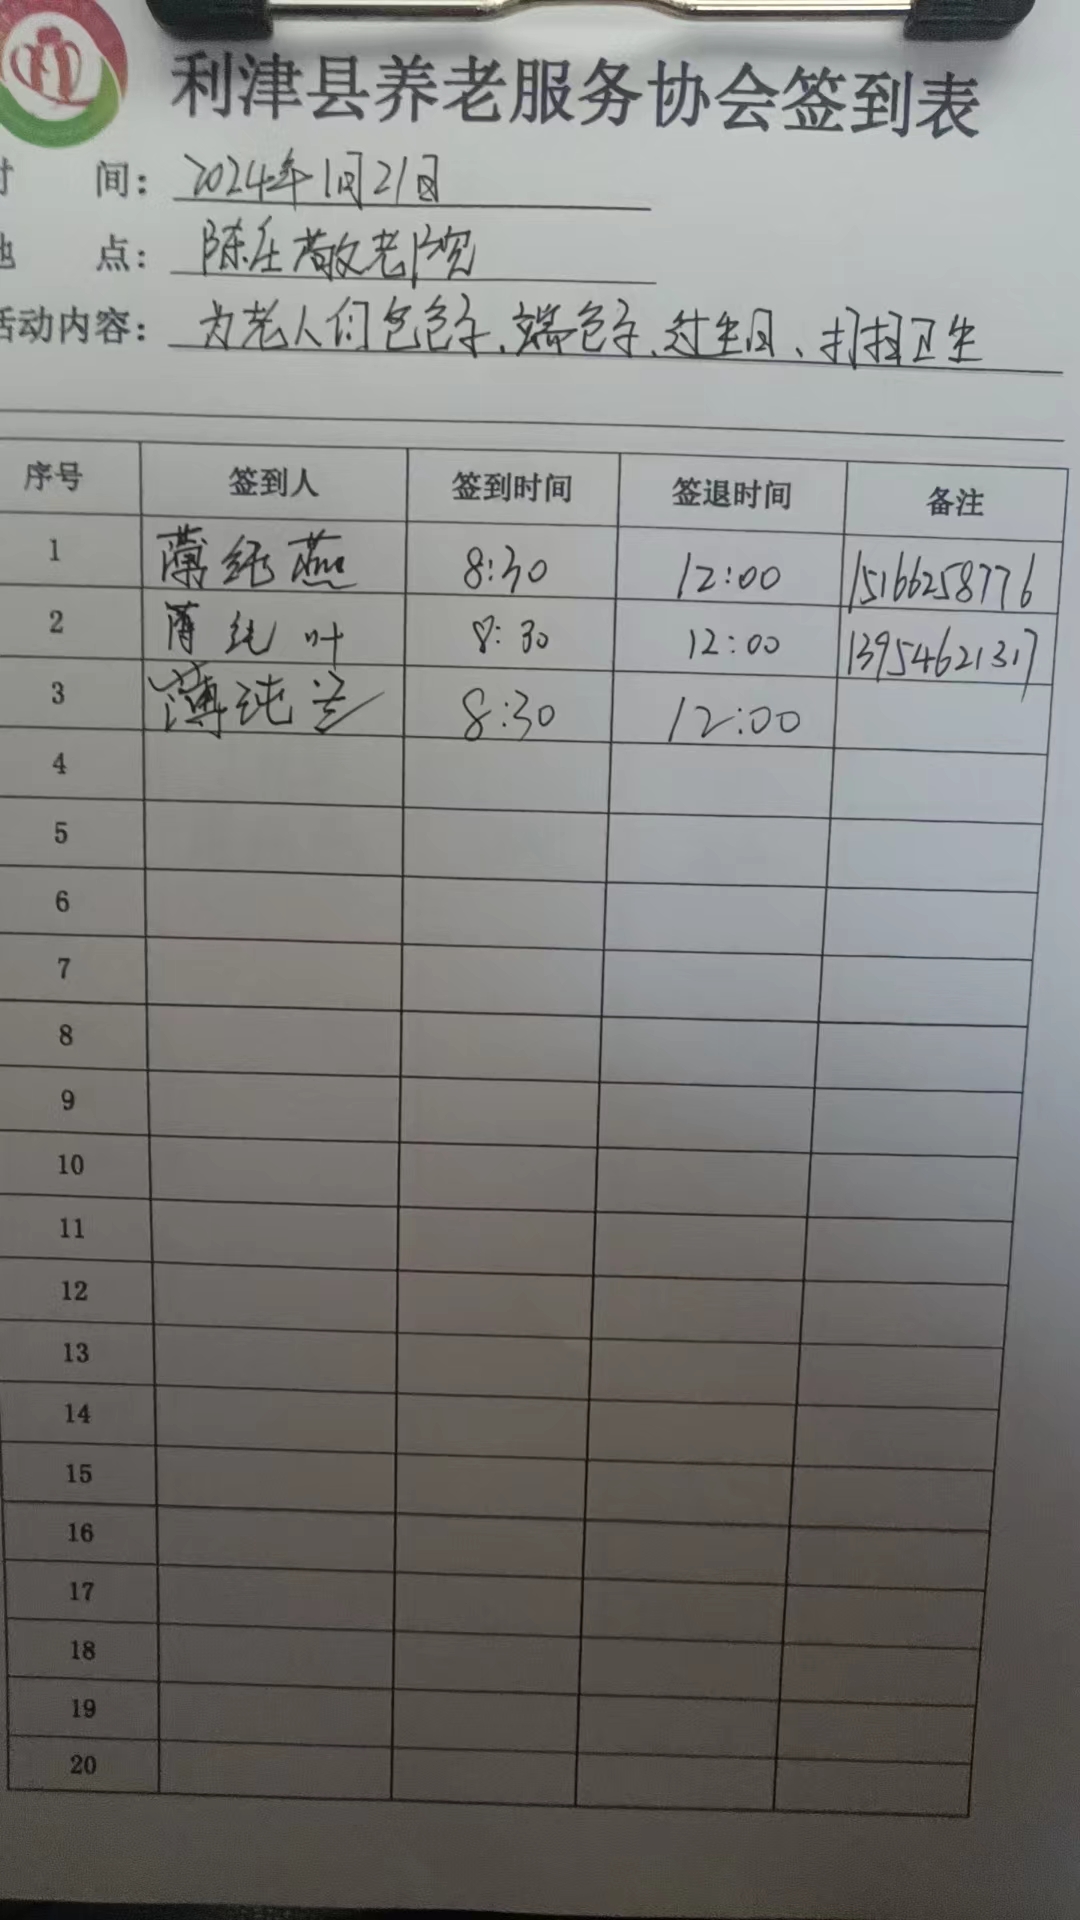 利津县养老服务协会签到表
时 间：2024年1月21日
地 点：陈庄敬老院
活动内容：为老人们包包子、端包子、过生日、打扫卫生
序号 签到人 签到时间 签退时间 备注
1 薄纯燕 8:30 12:00 15166258776
2 薄纯叶 8:30 12:00 13954621317
3 薄纯兰 8:30 12:00
4
5
6
7
8
9
10
11
12
13
14
15
16
17
18
19
20